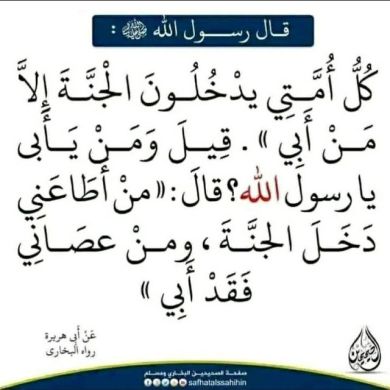 قال رسول الله ﷺ :
كُلُّ أُمَّتِي يدْخُلُونَ الْجنَّةَ إِلاَّ
مَنْ أَبِي » . قِيلَ وَمَنْ يَأْبى
يا رسول الله؟ قالَ : « منْ أَطَاعَنِي
دَخَلَ الجنَّةَ ، ومنْ عصَانِي
فَقَدْ أَبِي »
عَنْ أَبِي هريرة
رواه البخارى
صفحة الصحيحين البخاري ومسلم
safhatalssahihin